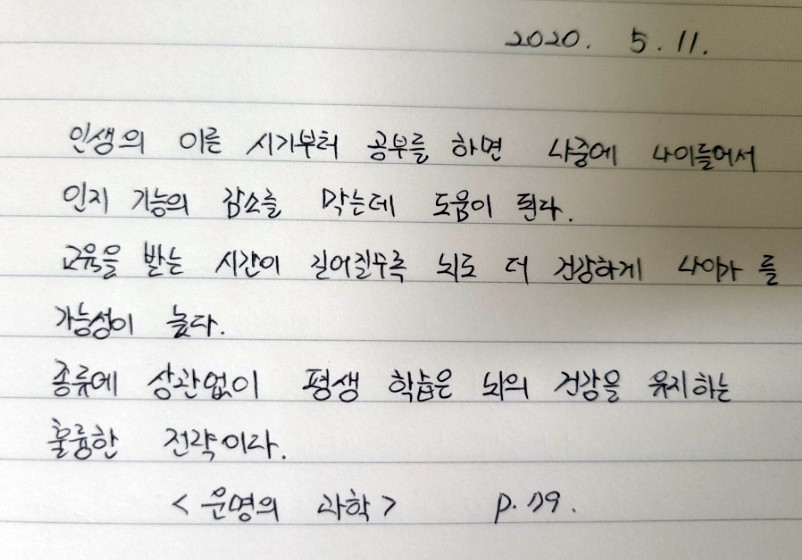 2020. 5. 11.
인생의 이른 시기부터 공부를 하면 나중에 나이들어서
인지 기능의 감소를 막는데 도움이 된다.
교육을 받는 시간이 길어질수록 뇌도 더 건강하게 나이가 들
가능성이 높다.
종류에 상관없이 평생 학습은 뇌의 건강을 유지하는
훌륭한 전략이다.
<운명의 과학> p. 179.